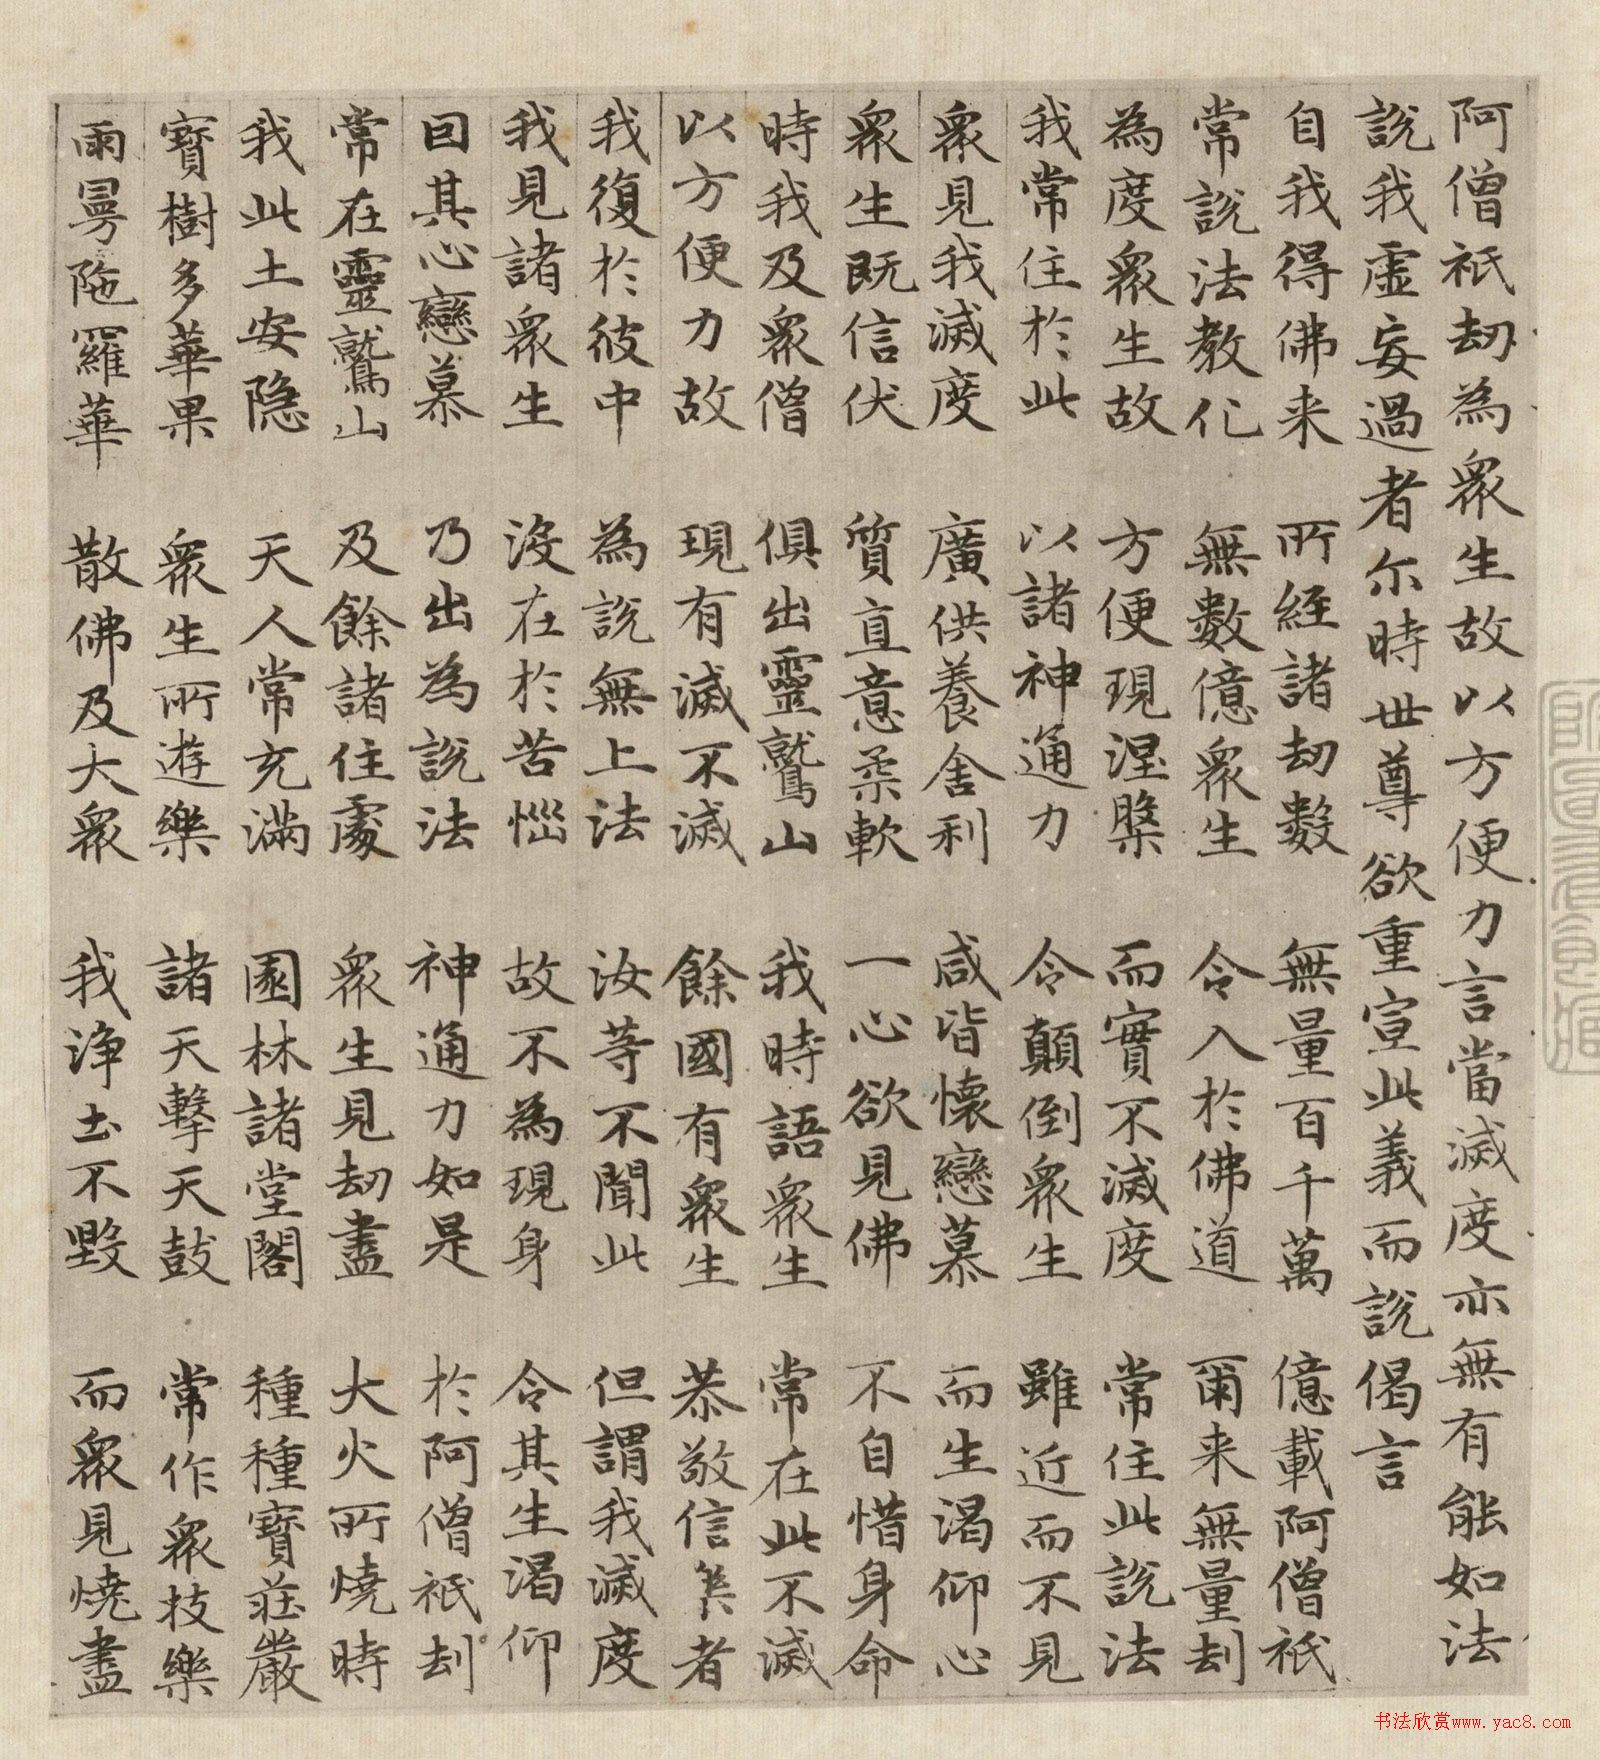 阿僧祇劫為眾生故以方便力言當滅度亦無有能如法
說我虛妄過者尒時世尊欲重宣此義而說偈言
自我得佛来 所經諸劫數 無量百千萬 億載阿僧祇
常說法教化 無數億眾生 令入於佛道 爾来無量劫
為度眾生故 方便現涅槃 而實不滅度 常住此說法
我常住於此 以諸神通力 令顛倒眾生 雖近而不見
眾見我滅度 廣供養舍利 咸皆懷戀慕 而生渴仰心
眾生既信伏 質直意柔軟 一心欲見佛 不自惜身命
時我及眾僧 俱出靈鷲山 我時語眾生 常在此不滅
以方便力故 現有滅不滅 餘國有眾生 恭敬信者
我復於彼中 為說無上法 汝等不聞此 但謂我滅度
我見諸眾生 沒在於苦惱 故不為現身 令其生渴仰
回其心戀慕 乃出為說法 神通力如是 於阿僧祇劫
常在靈鷲山 及餘諸住處 眾生見劫盡 大火所燒時
我此土安隐 天人常充滿 園林諸堂閣 種種寶莊嚴
寶樹多華果 眾生所遊樂 諸天擊天鼓 常作眾技樂
雨曼陁羅華 散佛及大眾 我淨土不毀 而眾見燒盡
书法欣赏www.yac8.com